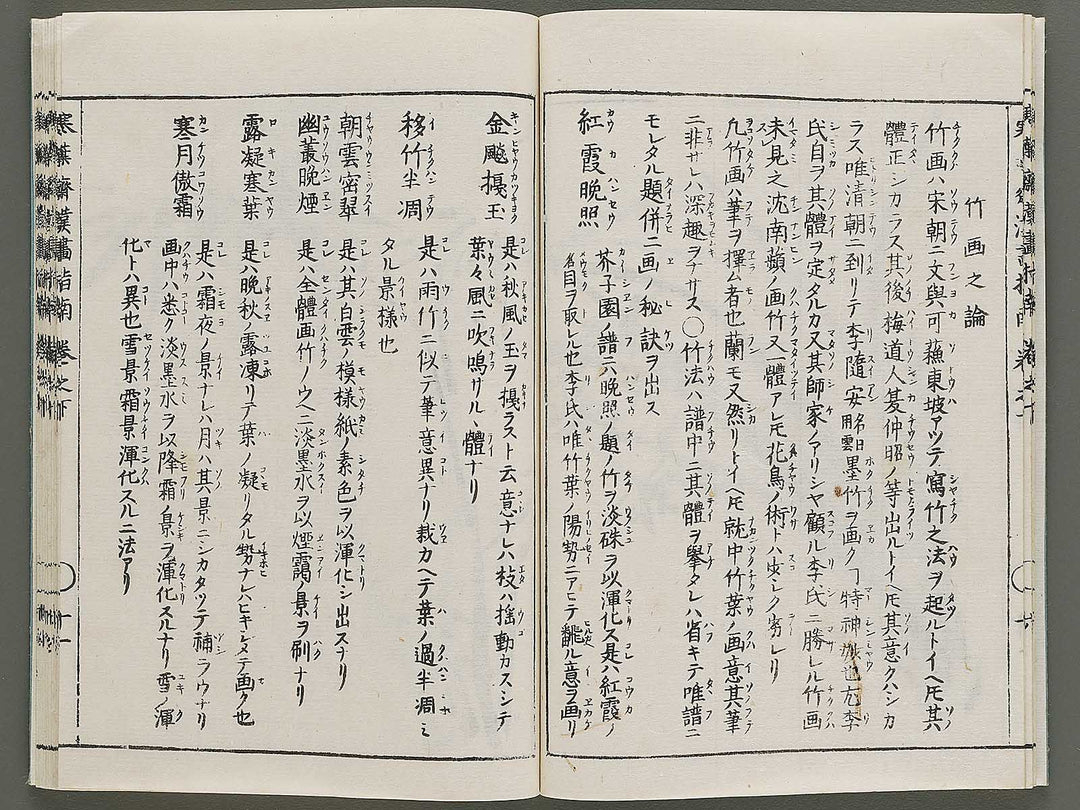 竹画之論
竹画ハ宋朝ニ文與可蘓東坡アツテ寫竹之法ヲ起ルトイヘ𪜈其
體正シカラス其後梅道人夏仲昭ノ等出ルトイヘ𪜈其意クハシカ
ラス唯清朝ニ到リテ李隨安名日用雲墨竹ヲ画クヿ特神妙也尤李
氏自ヲ其體ヲ定タルカ又其師家ノアリシヤ顧ル李氏ニ勝レル竹画
未見之沈南蘋ノ画竹又一體アレ𪜈花鳥ノ術トハ少シク劣レリ
凢竹画ハ筆ヲ擇ム者也蘭モ又然リトイヘ𪜈就中竹葉ノ画意其筆
ニ非サレハ深趣ヲナサス〇竹法ハ譜中ニ其體ヲ擧タレハ省キテ唯譜ニ
モレタル題併ニ画ノ秘訣ヲ出ス
紅霞晩照
芥子園ノ譜ニ六晩照ノ題ノ竹ヲ淡硃ヲ以渾化ス是ハ紅霞ノ
名目ヲ取レル也李氏ハ唯竹葉ノ陽勢ニアヒテ飜ル意ヲ画リ
金颷擾玉
是ハ秋風ノ玉ヲ擾ラスト云意ナレハ枝ハ揺動カスシテ
葉々風ニ吹鳴サルヽ體ナリ
移竹半凋
是ハ雨竹ニ似テ筆意異ナリ栽カヘテ葉ノ過半凋ミ
タル景様也
朝雲密翠
是ハ其白雲ノ模様紙ノ素色ヲ以渾化シ出スナリ
幽叢晩煙
是ハ全體画竹ノウヘニ淡墨水ヲ以煙靄ノ景ヲ刷ナリ
露凝寒葉
是ハ晩秋ノ露凍リテ葉ノ凝リタル勢ナレハヒキシメテ画ク也
寒月傲霜
是ハ霜夜ノ景ナレハ月ハ其景ニシカタツテ補ラウナリ
画中ハ悉ク淡墨水ヲ以降霜ノ景ヲ渾化スルナリ雪ノ渾
化トハ異也雪景霜景渾化スルニ二法アリ
寒葉齋漢畫指南 巻之下
十一